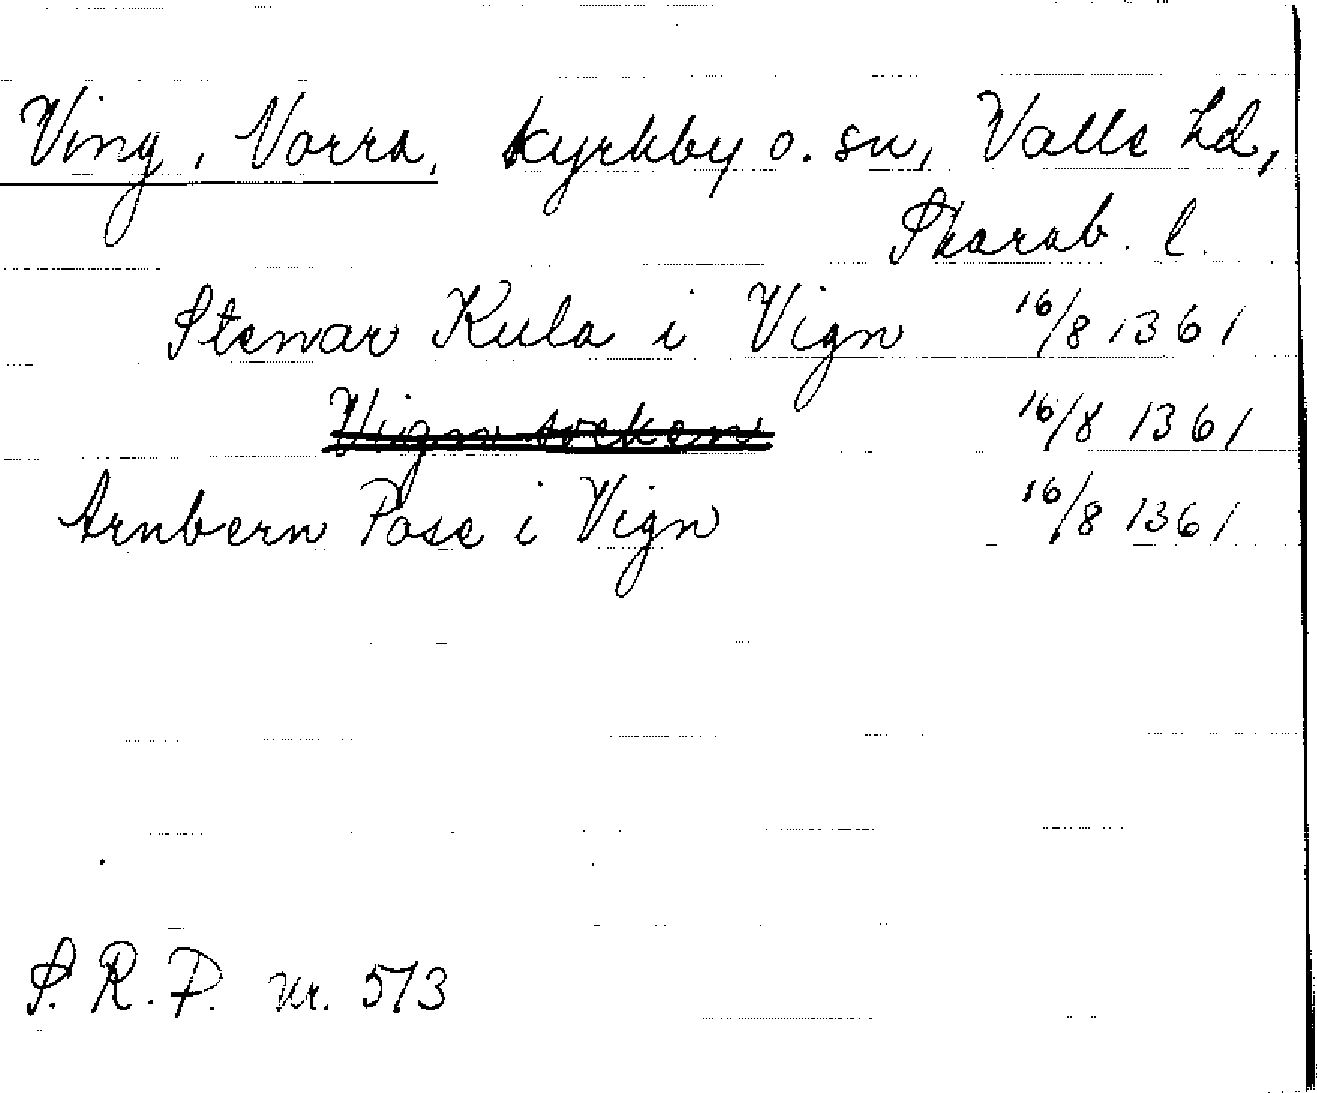 Ving, Norra, kyrkby o. sn, Valle hd,
Skarab. l.
Stenar Kula i Vign 16/8 1361
Vign soken 16/8 1361
Arnbern Pose i Vign 16/8 1361
S. R. P. nr. 573